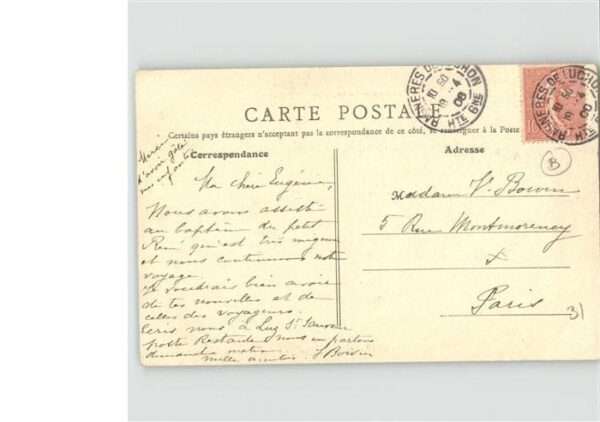 BAGNERES DE LUCHON
10 50
19 -4
06
HTE GNE
BAGNERES DE LUCHON
10 50
19 -4
06
HTE
CARTE POSTALE
Certains pays étrangers n'acceptent pas la correspondance de ce côté, se renseigner à la Poste
Correspondance
Adresse
Merci
d'avoir gâté
mes enfants
Ma chère Eugénie,
Nous avons assisté
au baptême du petit
René qui est très mignon
et nous continuons notre
voyage.
Je voudrais bien avoir
de tes nouvelles et de
celles des voyageurs.
Ecris nous à Luz St Sauveur
poste Restante nous en partons
dimanche matin
mille amitiés J Boivin
Madame V. Boivin
5 Rue Montmorency
Paris
B
31